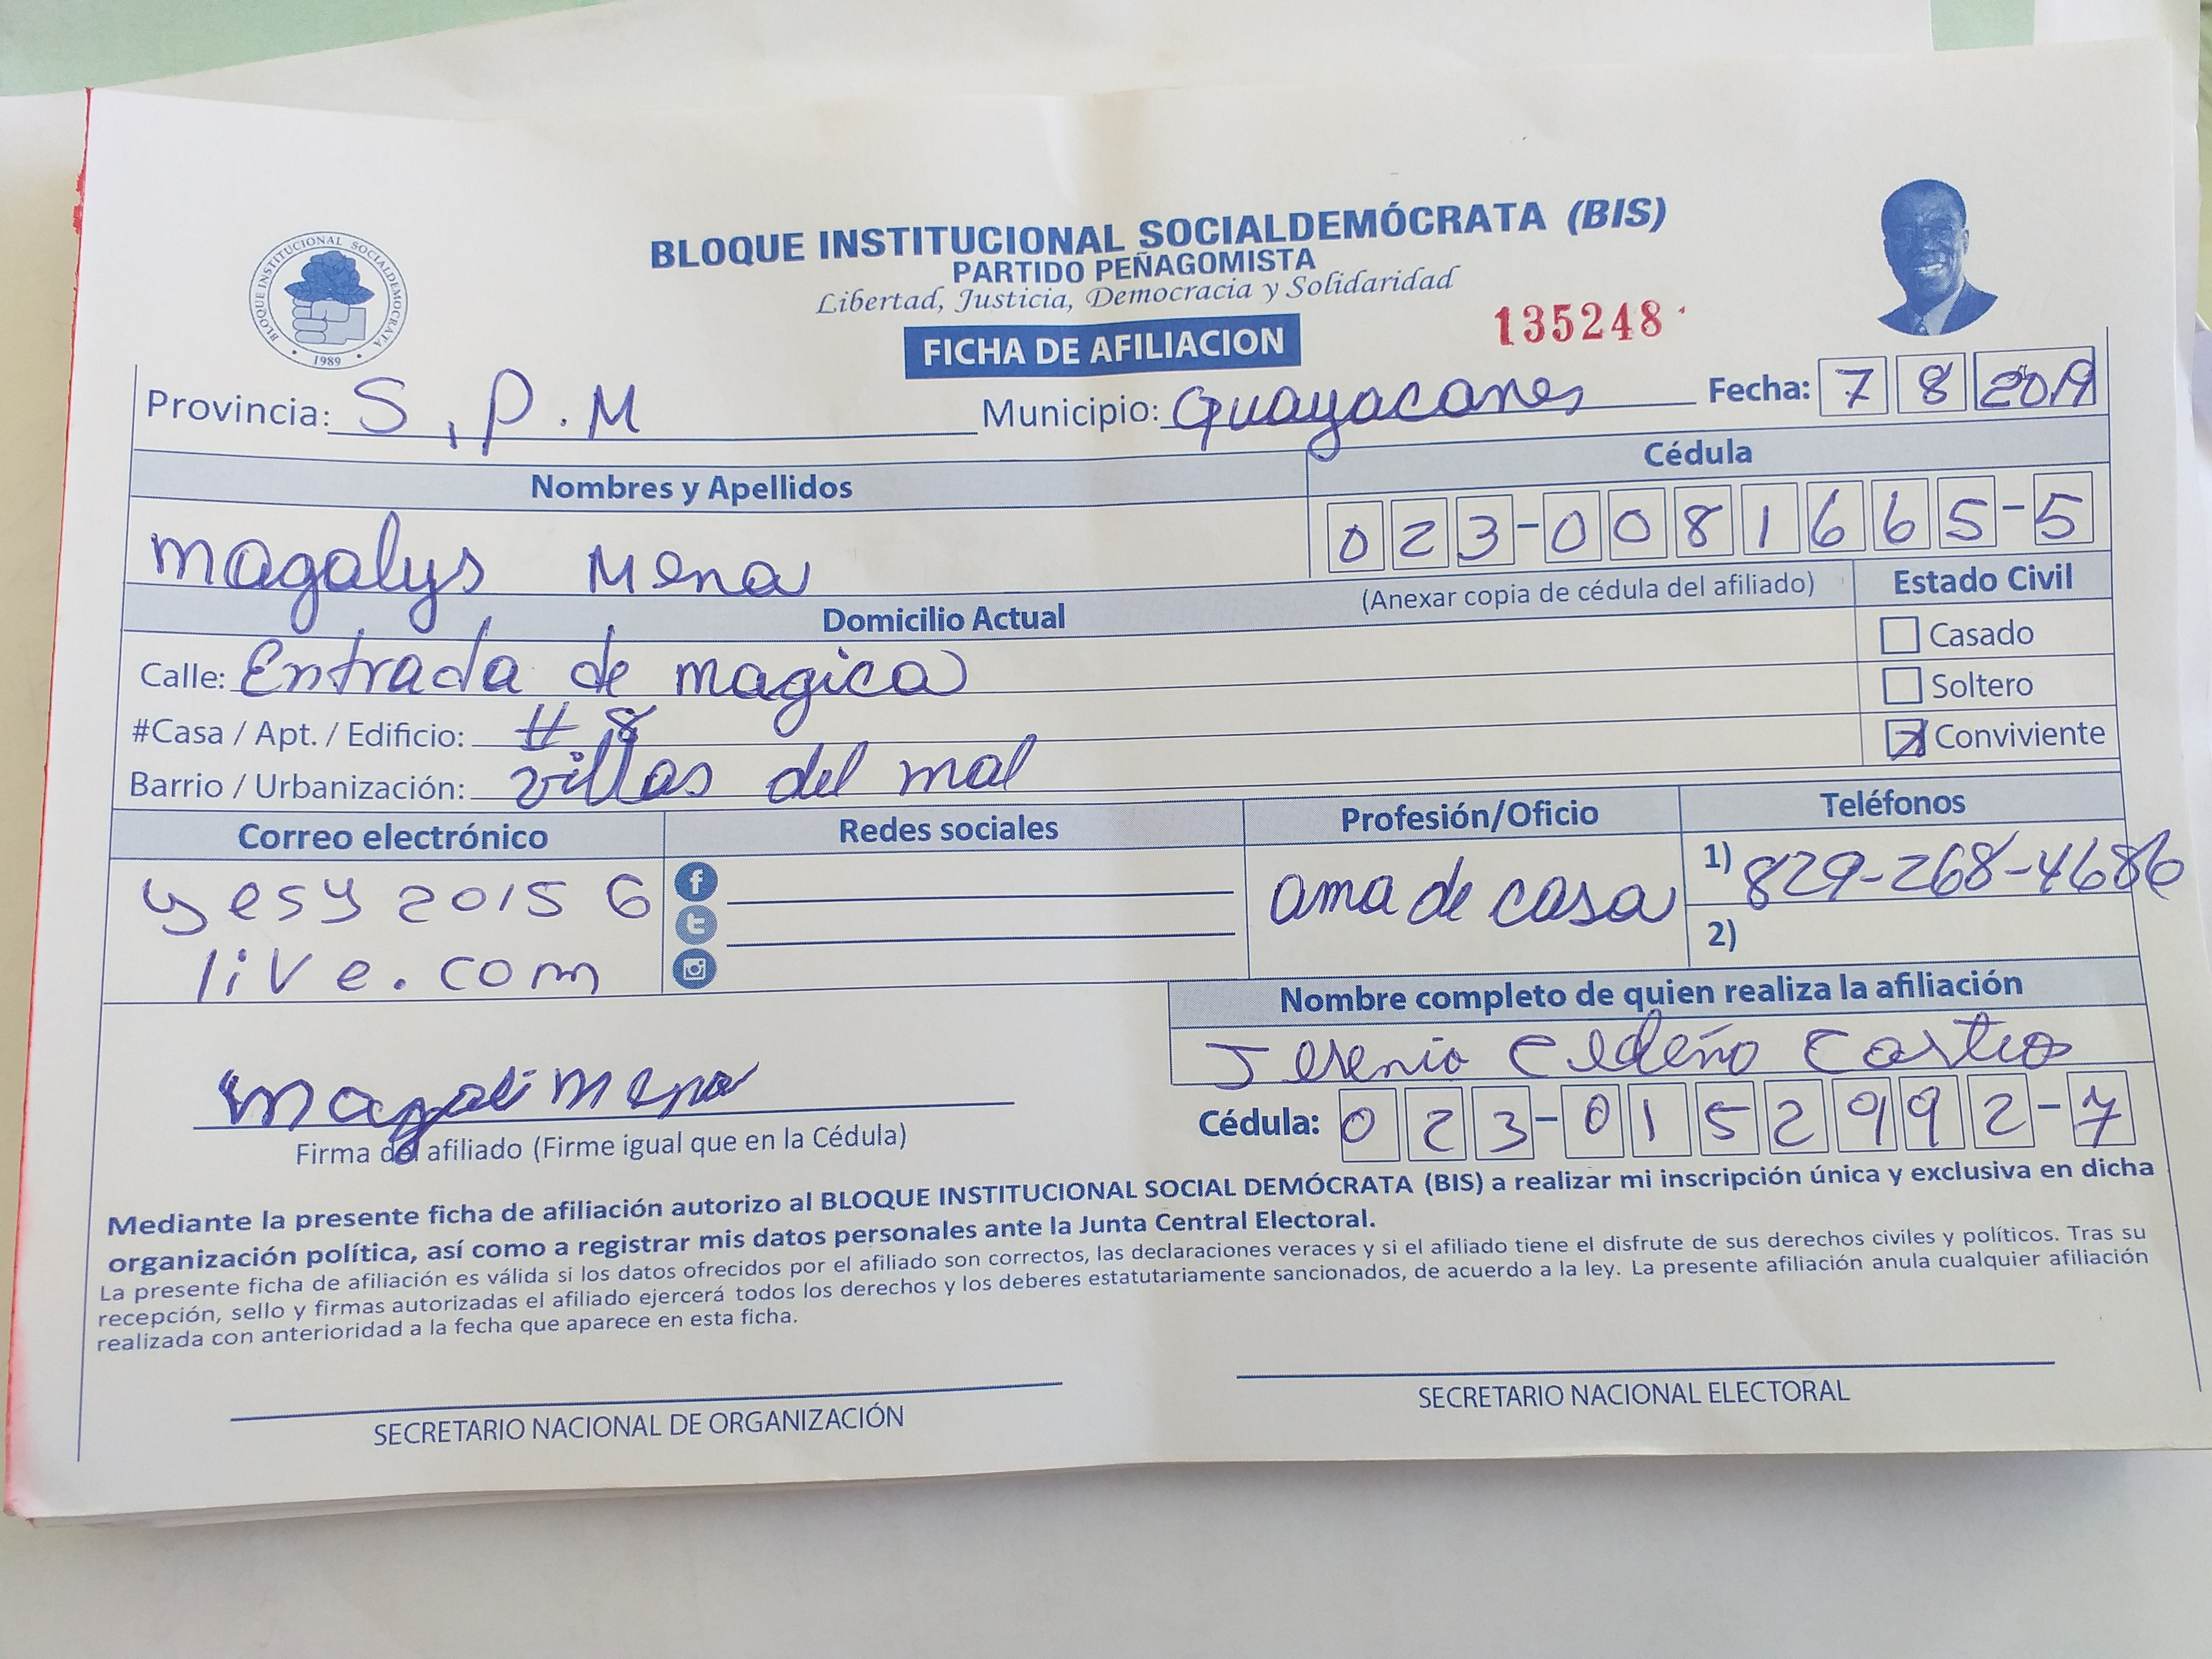 BLOQUE INSTITUCIONAL SOCIALDEMÓCRATA (BIS)
PARTIDO PEÑAGOMISTA
Libertad, Justicia, Democracia y Solidaridad
BLOQUE INSTITUCIONAL SOCIALDEMOCRATA
• 1989 •
135248
FICHA DE AFILIACION
Provincia: S, P. M Municipio: Guayacanes Fecha: 7 8 2019
Nombres y Apellidos Cédula
magalys Mena 023-0081665-5
Domicilio Actual (Anexar copia de cédula del afiliado) Estado Civil
Calle: Entrada de magica Casado
Soltero
#Casa / Apt. / Edificio: # 8
Conviviente
Barrio / Urbanización: villas del mal
Correo electrónico Redes sociales Profesión/Oficio Teléfonos
yesy 2015 @ ama de casa 1) 829-268-4686
live.com 2)
Nombre completo de quien realiza la afiliación
Jesenia Cedeño Castro
magali Mena Cédula: 023-0152992-7
Firma del afiliado (Firme igual que en la Cédula)
Mediante la presente ficha de afiliación autorizo al BLOQUE INSTITUCIONAL SOCIAL DEMÓCRATA (BIS) a realizar mi inscripción única y exclusiva en dicha
organización política, así como a registrar mis datos personales ante la Junta Central Electoral.
La presente ficha de afiliación es válida si los datos ofrecidos por el afiliado son correctos, las declaraciones veraces y si el afiliado tiene el disfrute de sus derechos civiles y políticos. Tras su
recepción, sello y firmas autorizadas el afiliado ejercerá todos los derechos y los deberes estatutariamente sancionados, de acuerdo a la ley. La presente afiliación anula cualquier afiliación
realizada con anterioridad a la fecha que aparece en esta ficha.
SECRETARIO NACIONAL DE ORGANIZACIÓN SECRETARIO NACIONAL ELECTORAL